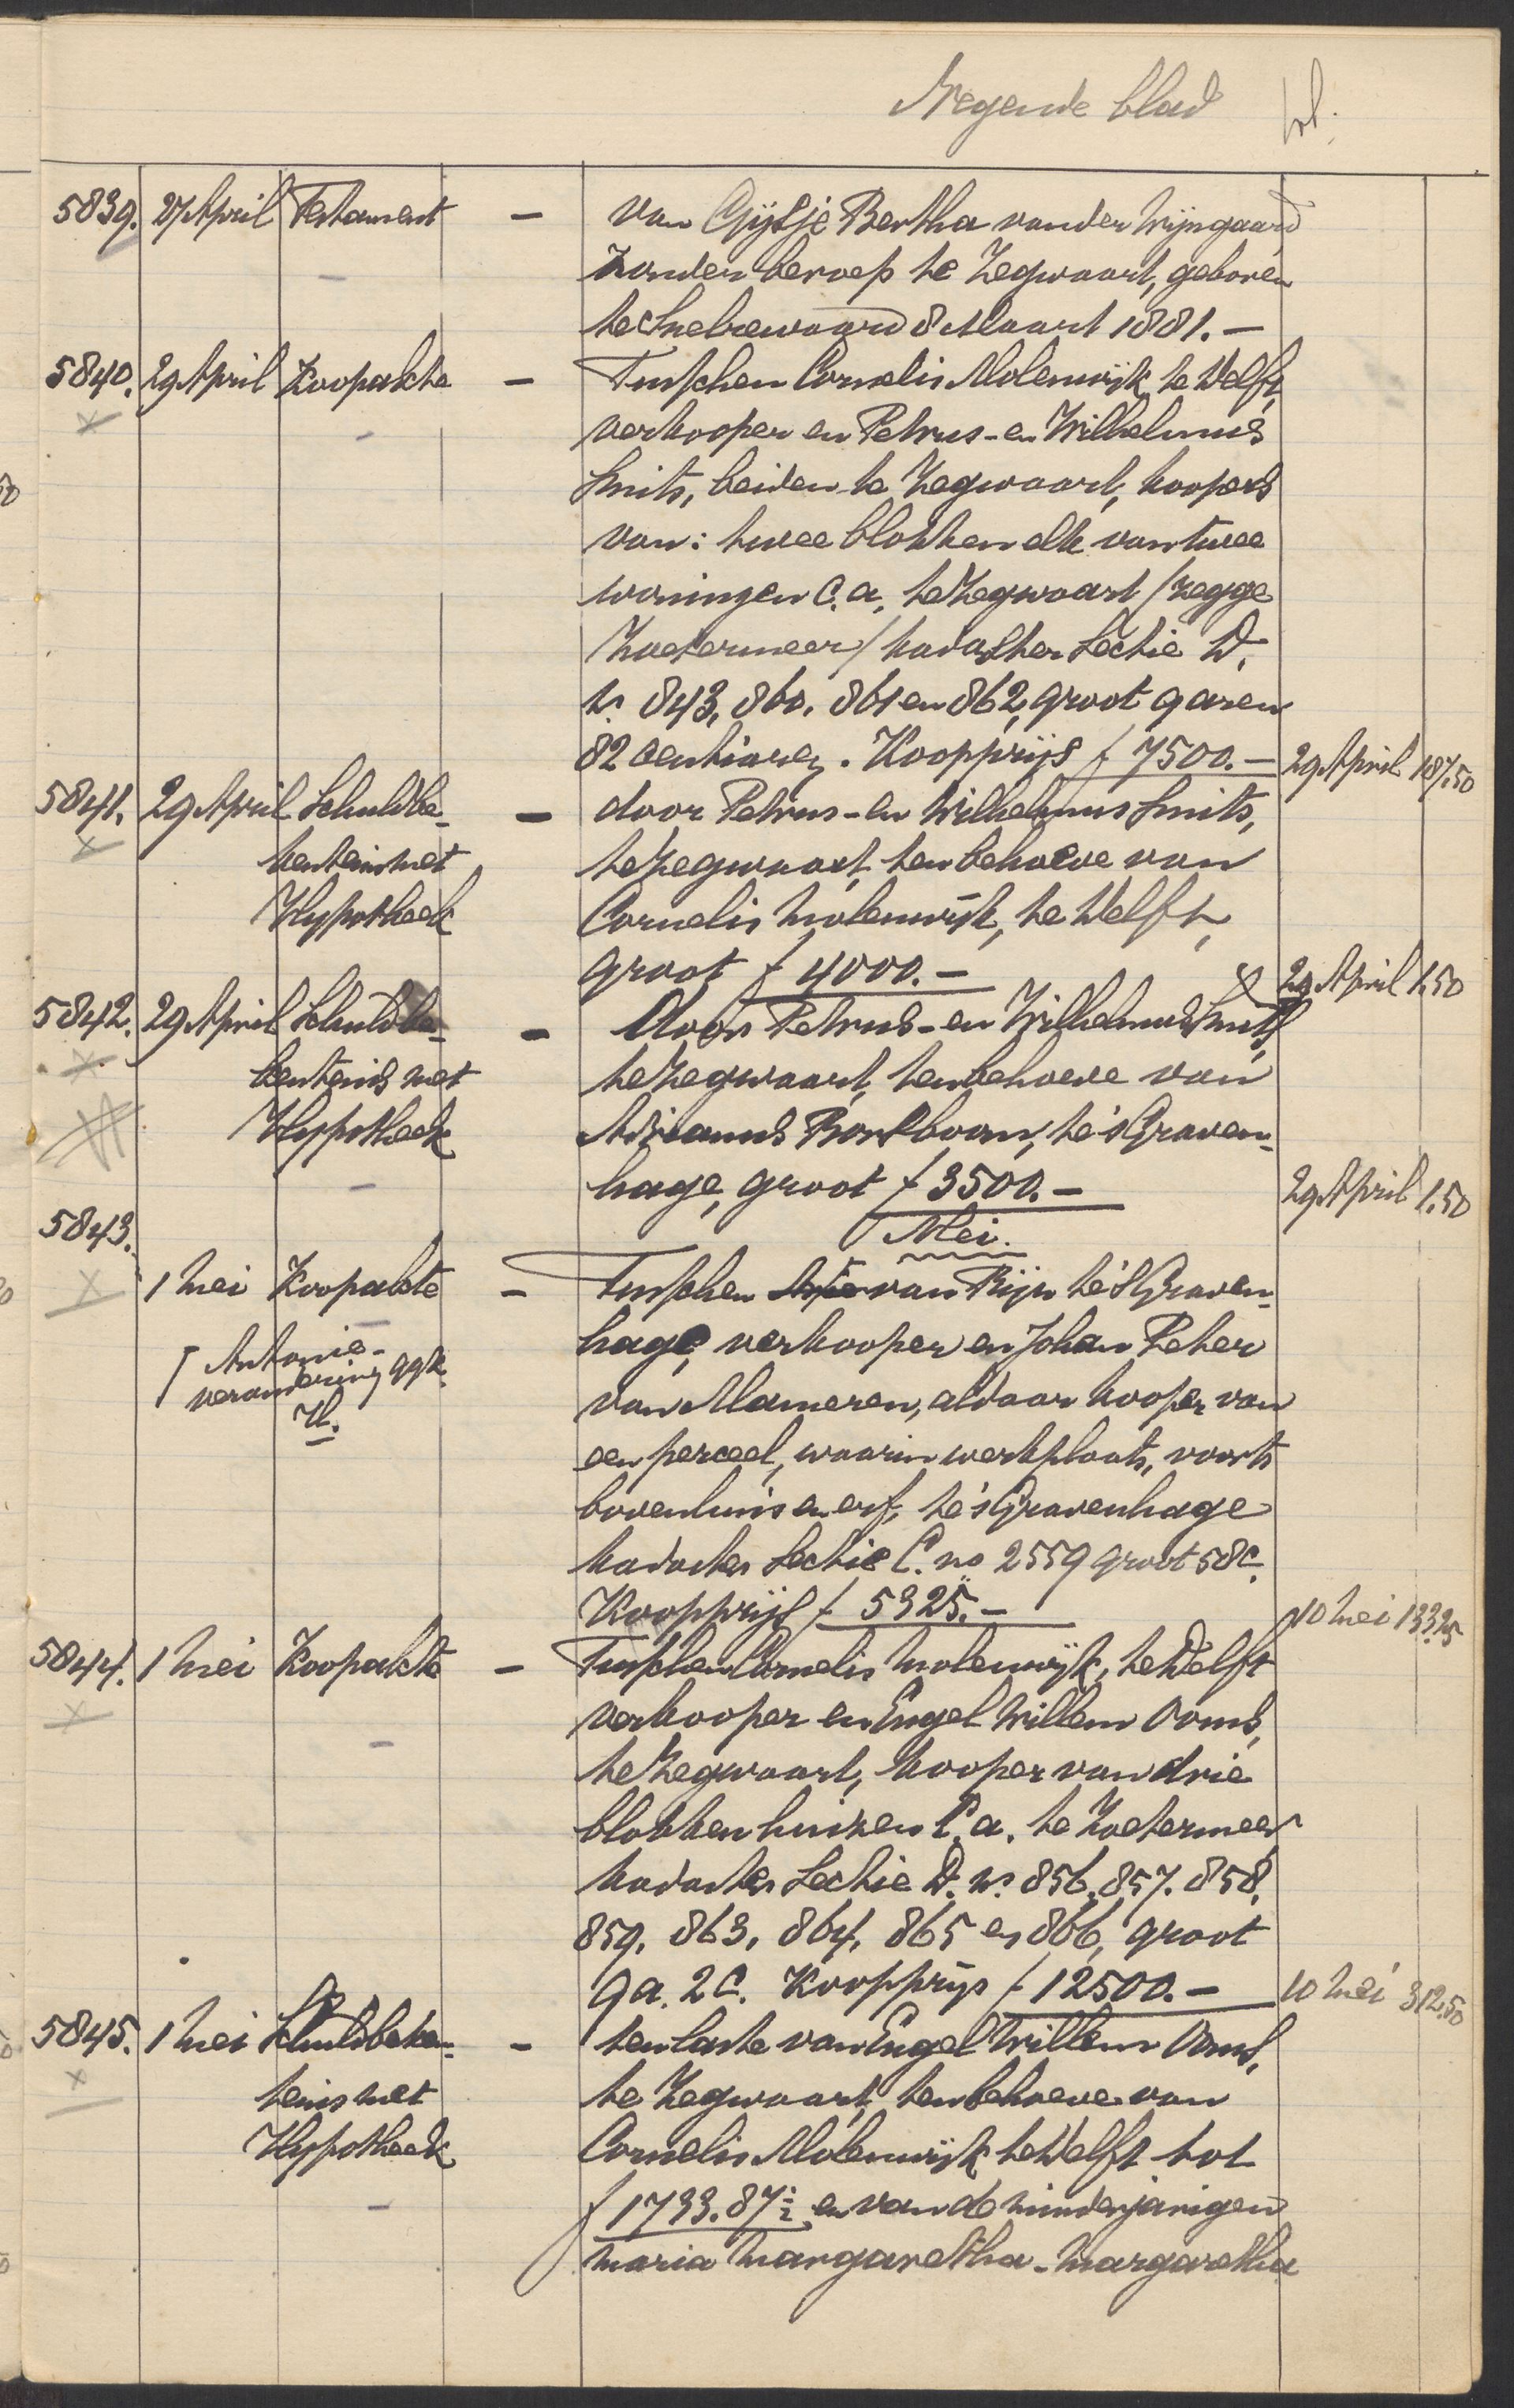 Negende blad
5839. 27 April Testament - van Gijsje Bertha van der Wijngaard
zonder beroep te Zegwaart, geboren
te Snelrewaard 8 Maart 1881. -
5840. 29 April Koopakte - Tusschen Cornelis Molenwijk, te Delft,
verkooper en Petrus - en Wilhelmus
Smits, beiden te Zegwaart, koopers
van: twee blokken elk van twee
woningen c.a. te Zegwaart /zegge
Zoetermeer/ kadaster Sectie D.
No 843, 860, 861 en 862, groot 9 aren
82 centiaren. Koopprijs f 7500.- 29 April 187.50
5841. 29 April Schuldbe- - door Petrus - en Wilhelmus Smits,
kentenis met te Zegwaart, ten behoeve van
Hypotheek Cornelis Molenwijk, te Delft,
groot f 4000.- 29 April 1.50
5842. 29 April Schuldbe- - Door Petrus - en Wilhelmus Smits,
kentenis met te Zegwaart, ten behoeve van
Hypotheek Adrianus Bontboom, te 's Graven-
hage, groot f 3500.- 29 April 1.50
5843. Mei.
1 Mei Koopakte - Tusschen van Rijn te 's Graven-
hage, verkooper en Johan Peter
Antonie-
verandering ggk.
H.
van Mameren, aldaar kooper van
een perceel, waarin werkplaats, voorts
bovenhuis en erf, te 's Gravenhage
kadaster Sectie C. no 2559 groot 58 c.
Koopprijs f 5325.- 10 Mei 133.25
5844. 1 Mei Koopakte - Tusschen Cornelis Molenwijk, te Delft
verkooper en Engel Willem Ooms,
te Zegwaart, kooper van drie
blokken huizen c.a. te Zoetermeer
kadaster Sectie D. No 856, 857. 858,
859, 863, 864, 865 en 866, groot
9 a. 2 c. Koopprijs f 12500.- 10 Mei 312.50
5845. 1 Mei Schuldbeken- - ten laste van Engel Willem Ooms,
tenis met te Zegwaart, ten behoeve van
Hypotheek Cornelis Molenwijk te Delft tot
f 1733.87½ en van de minderjarigen
Maria Margaretha - Margaretha